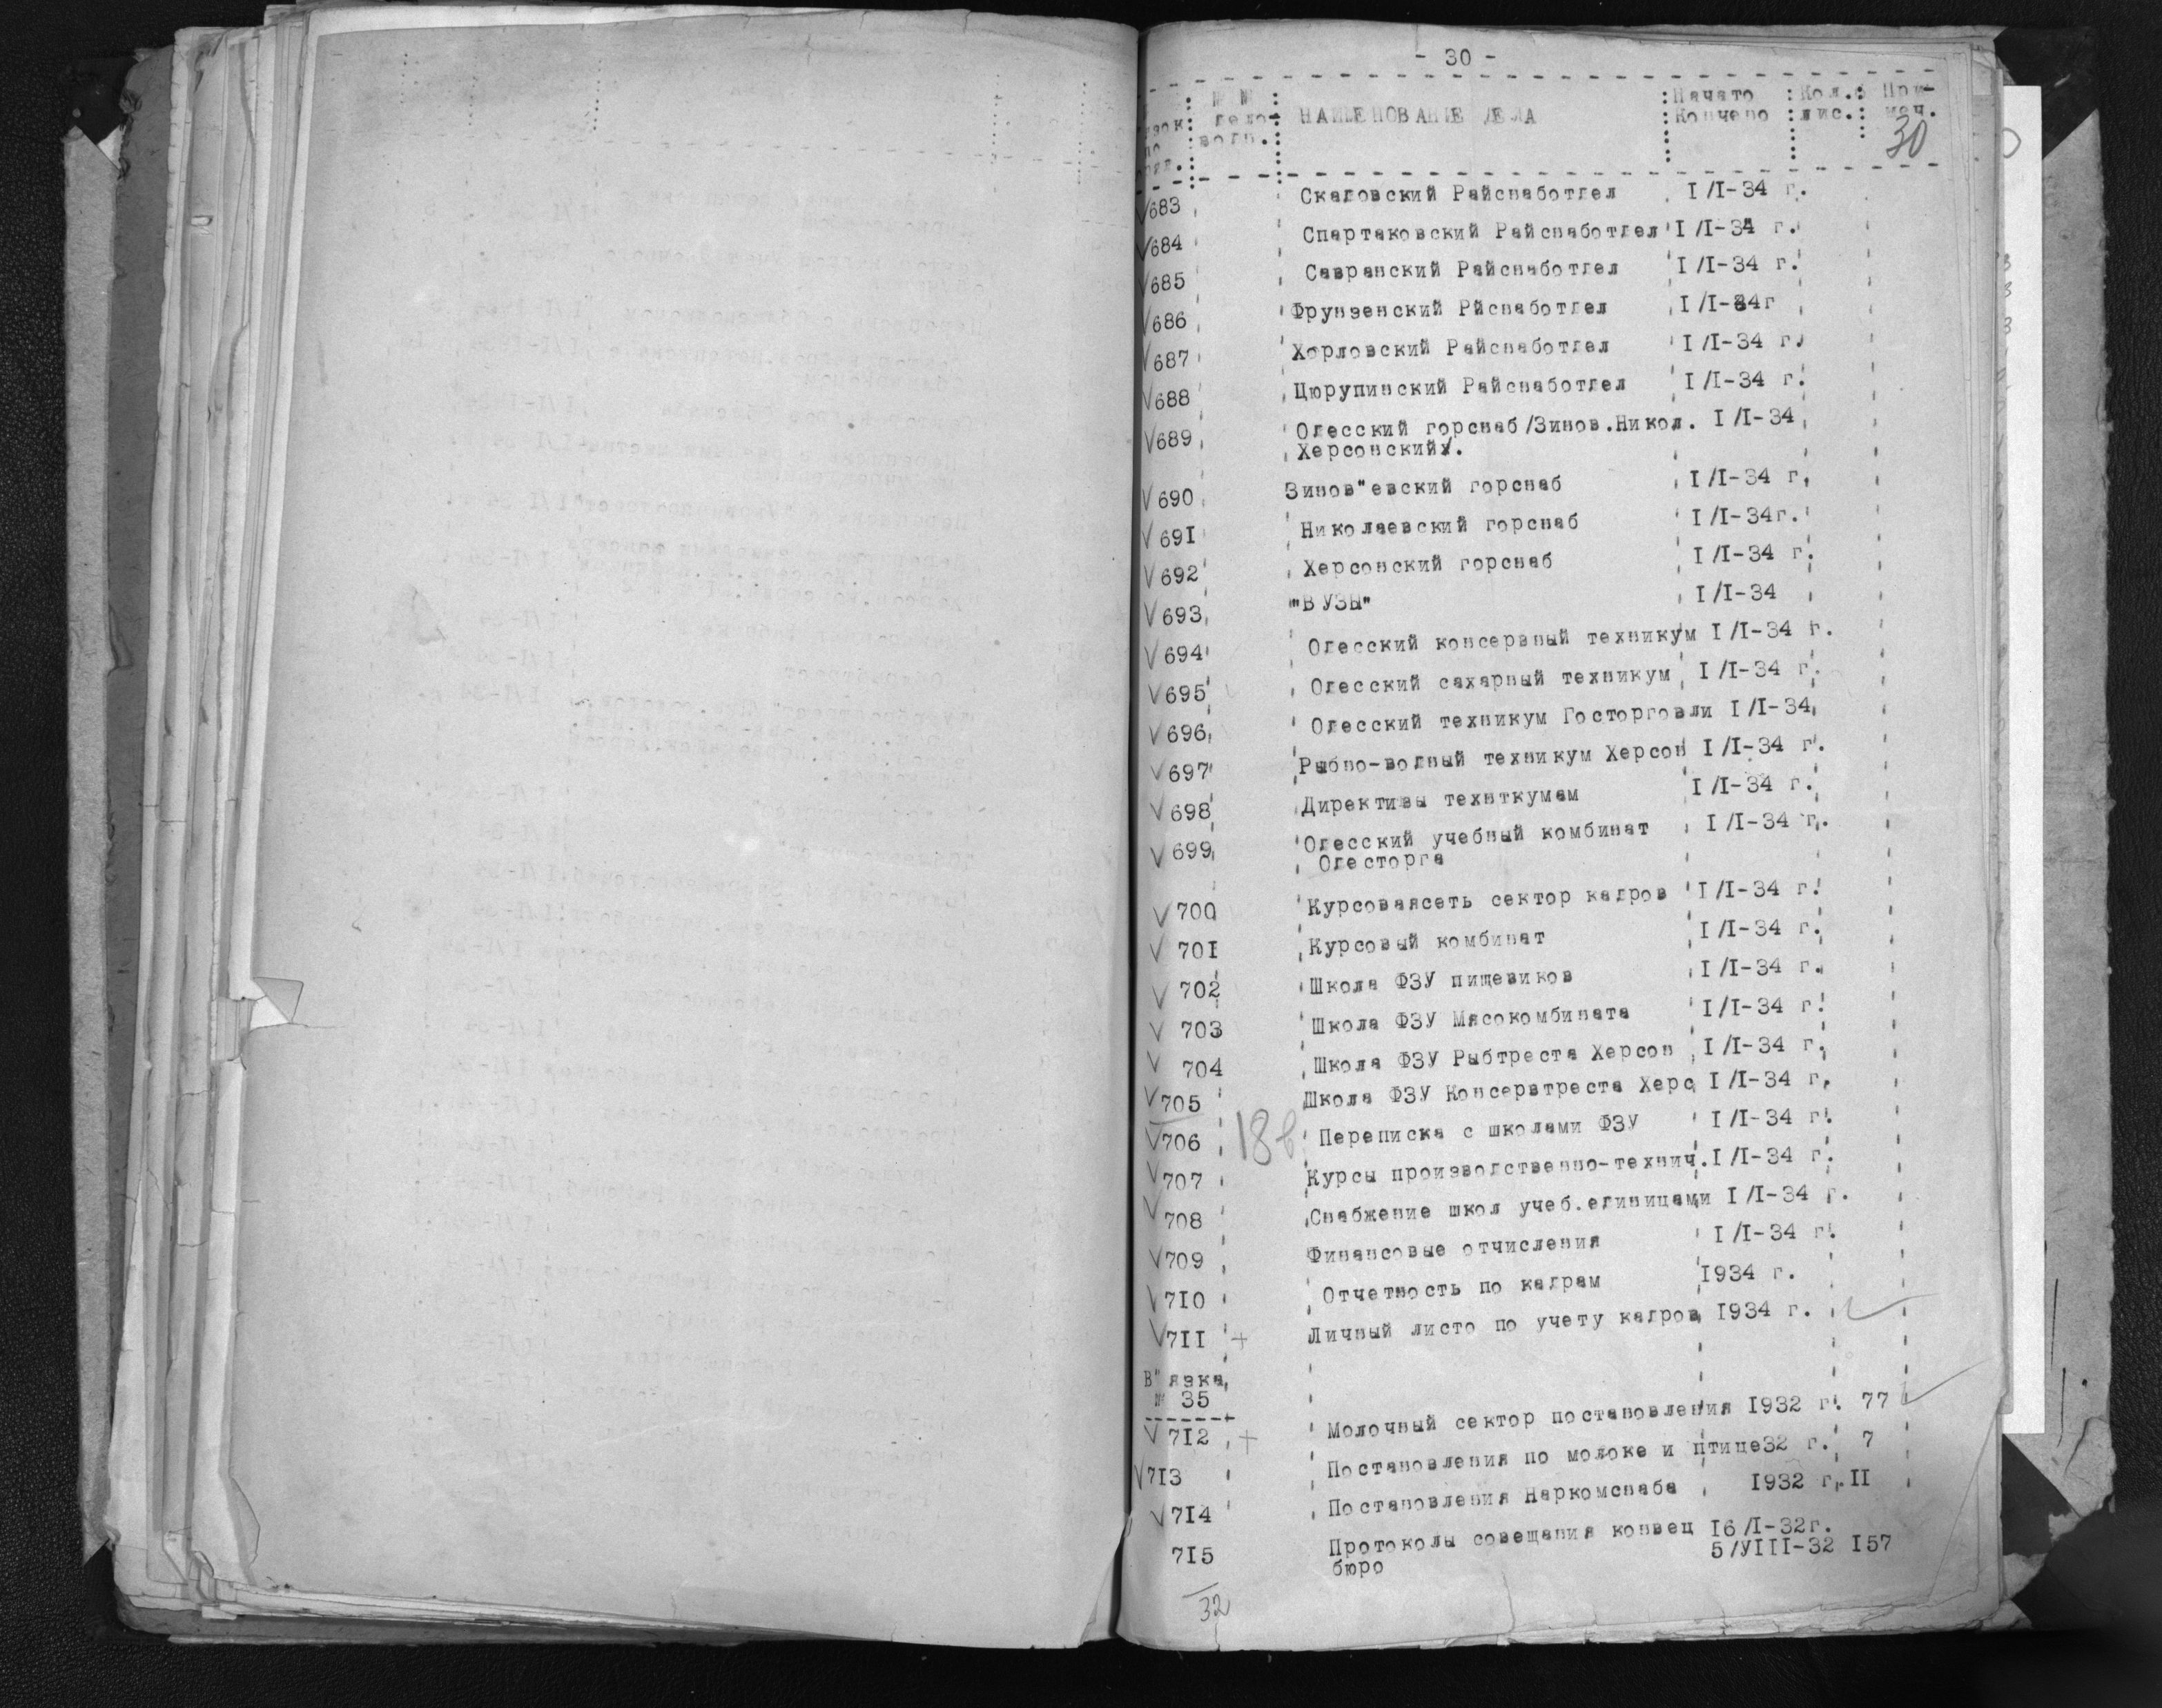 - 30 -
№ № : НАИМЕНОВАНИЕ ДЕЛА : Начато : Кол. : При-
дело- Кончено : лис. : меч.
30
683 Скадовский Райснаботдел I/I-34 г.
684 Спартаковский Райснаботдел I/I-34 г.
685 Савранский Райснаботдел I/I-34 г.
686 Фрунзенский Рйснаботдел I/I-34г
687 Хорловский Райснаботдел I/I-34 г.
688 Цюрупинский Райснаботдел I/I-34 г.
689 Одесский горснаб/Зинов.Никол. I/I-34
Херсонский/.
690 Зинов"евский горснаб I/I-34 г.
691 Николаевский горснаб I/I-34г.
692 Херсонский горснаб I/I-34 г.
693 "ВУЗЫ" I/I-34
694 Одесский консервный техникум I/I-34 г.
695 Одесский сахарный техникум I/I-34 г.
696 Одесский техникум Госторговли I/I-34
697 Рыбно-водный техникум Херсон I/I-34 г.
698 Директивы техниткумам I/I-34 г.
699 Одесский учебный комбинат I/I-34 г.
Одесторга
700 Курсоваясеть сектор кадров I/I-34 г.
701 Курсовый комбинат I/I-34 г.
702 Школа ФЗУ пищевиков I/I-34 г.
703 Школа ФЗУ Мясокомбината I/I-34 г.
704 Школа ФЗУ Рыбтреста Херсон I/I-34 г.
705 Школа ФЗУ Консервтреста Херс I/I-34 г.
706 18в Переписка с школами ФЗУ I/I-34 г.
707 Курсы производственно-технич. I/I-34 г.
708 Снабжение школ учеб.единицами I/I-34 г.
709 Финансовые отчисления I/I-34 г.
7I0 Отчетность по кадрам I934 г.
7II + Личный листо по учету кадров I934 г.
В"язка
№ 35
7I2 + Молочный сектор постановления I932 г. 77
7I3 Постановления по молоке и птице32 г. 7
7I4 Постановления Наркомснаба I932 г. II
7I5 Протоколы совещания конвец I6/I-32г.
бюро 5/УIII-32 I57
32